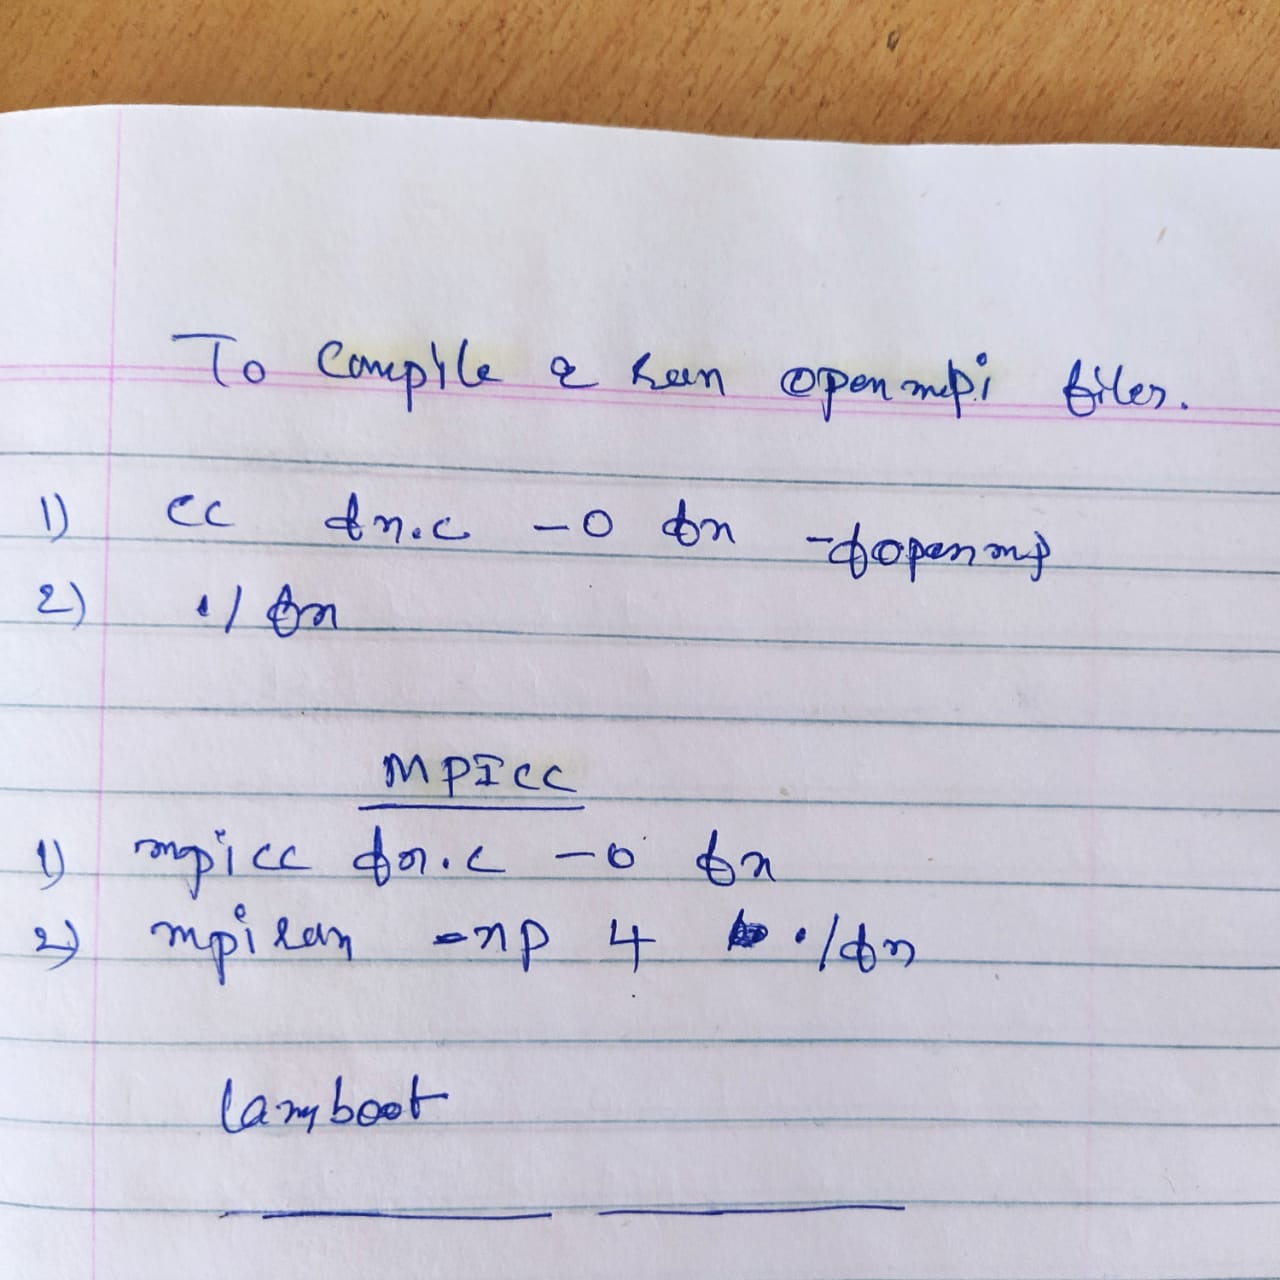 To Compile & run openmpi files.
1) cc fn.c -o fn -fopenmp
2) ./fn
MPICC
1) mpicc fn.c -o fn
2) mpirun -np 4 ./fn
lamboot